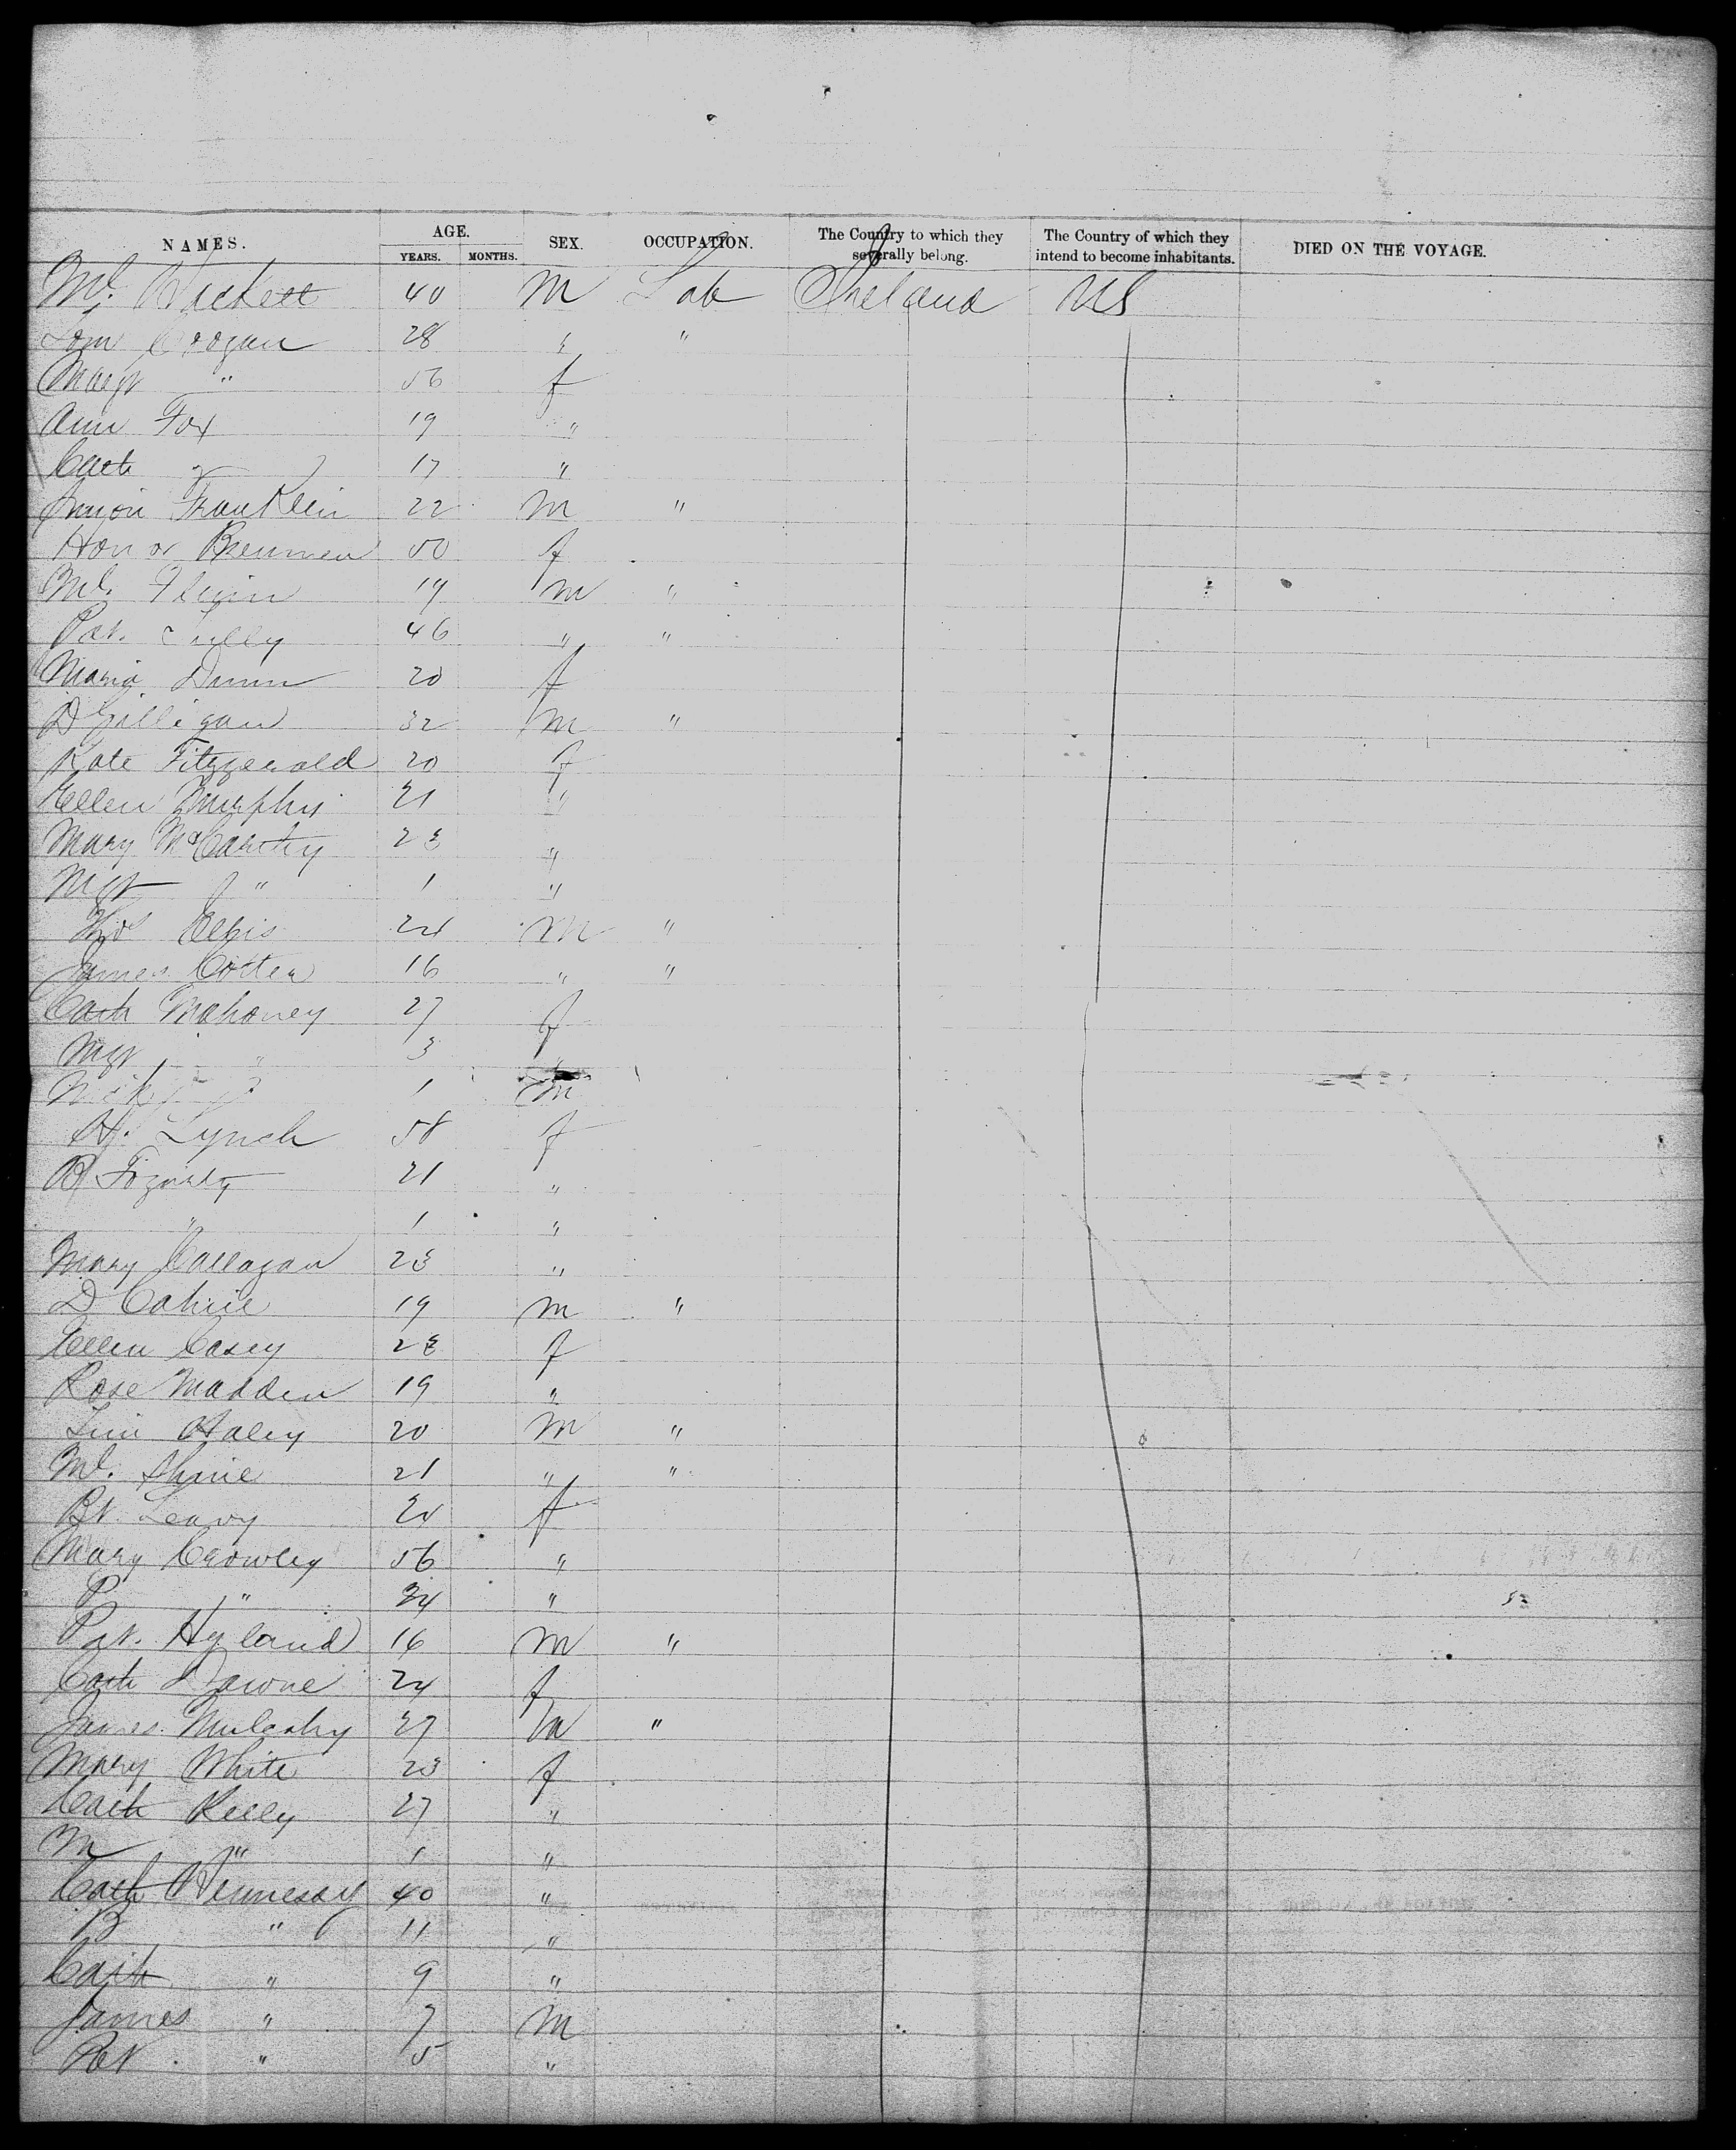 NAMES. AGE. SEX. OCCUPATION. The Country to which they severally belong. The Country of which they intend to become inhabitants. DIED ON THE VOYAGE.
YEARS. MONTHS.
Ml. Hackett 40 M Lab Ireland US
Tom Coogan 28 " "
Margt " 56 f
Ann Fox 19 "
Cath " 17 "
Simon Franklin 22 M "
Honor Brennen 50 f
Ml. Flinn 19 M "
Pat. Tully 46 " "
Maria Dunn 20 f
D Gilligan 32 M "
Kate Fitzgerald 20 f
Ellen Murphy 21 "
Mary McCarthy 23 "
Mgt " 1 "
Thos Ellis 24 M "
James Cotter 16 " "
Cath Mahoney 27 f
Mgt " 3 "
Nick " 1 M
H. Lynch 58 f
B Fogarty 21 "
" 1 "
Mary Callagan 23 "
D Cahill 19 M "
Ellen Casey 28 f
Rose Madden 19 "
Tim Haley 20 M "
Ml. Shine 21 " "
Bt. Leavy 20 f
Mary Crowley 56 "
P " 24 "
Pat. Hyland 16 M "
Cath 24 f
James Mulcahy 27 M "
Mary White 23 f
Cath Kelly 27 "
M " 1 "
Cath Hennessy 40 "
B " 11 "
Cath " 9 "
James " 7 M
Pat. " 5 "